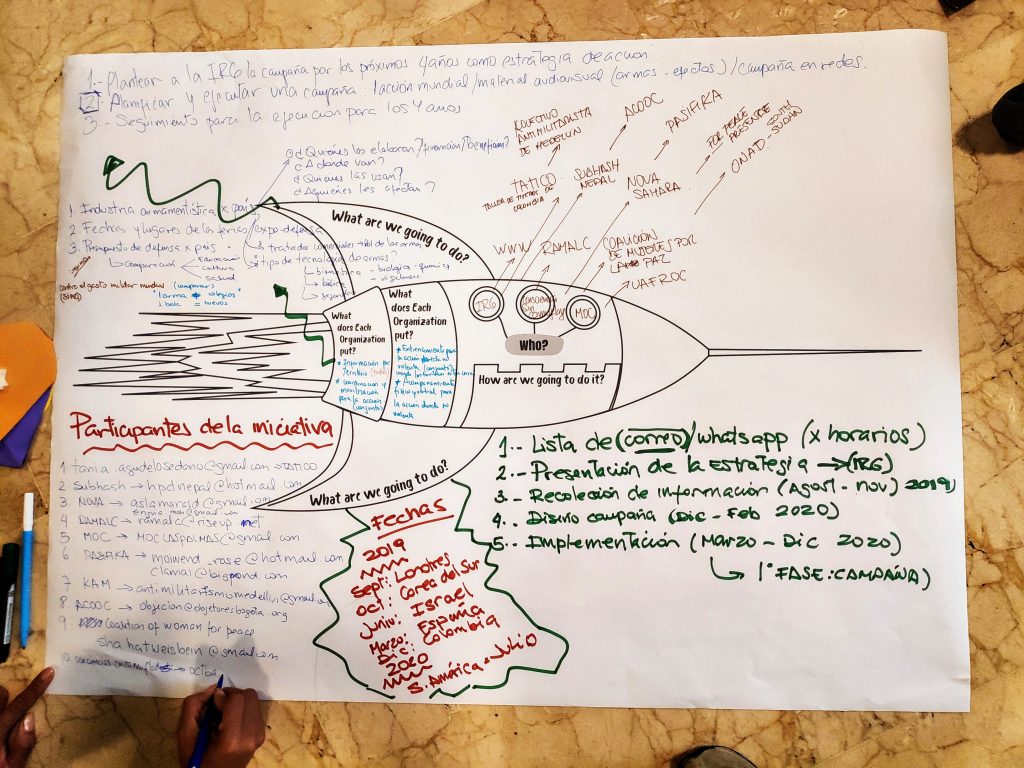 1.- Plantear a la IRG la campaña por los próximos 4 años como estrategia de acción
2.- Planificar y ejecutar una campaña: 1 acción mundial/material audiovisual (armas - efectos) / campaña en redes.
3.- Seguimiento para la ejecución para los 4 años
¿Quiénes los elaboran?/financian/benefician?
¿A dónde van?
¿Quienes las usan?
¿A quiénes les afectan?
1. Industria armamentística x país
2 Fechas y lugares de las ferias/expo-defensa
3. Presupuesto de defensa x país
→ Comparación
educación
cultura
salud
contra el gasto militar mundial (comparar)
(SIPRI)
1 arma → colegios
1 bala = huevos
tratados comerciales → de las armas
tipo de tecnología de armas?
biológica - química
- vigilancia
KOLECTIVO
ANTIMILITARISTA
DE MEDELLIN
ACOOC
PASIFIKA
TATICO
COLOMBIA
SUBHASH
NEPAL
NOVA
SAHARA
FOR PEACE
SOUTH
SUDÁN
ONAD.
WWW
RAMALC
COALICIÓN
DE MUJERES POR
LA PAZ
UAFROC
What are we going to do?
What
does Each
Organization
put?
* Información por
territorio (todos)
* coordinación y
movilización
para la acción
(conjunta)
What
does Each
Organization
put?
* Entrenamiento para
la acción directa no
violenta (conjunto)
* Acompañamiento
para
la acción directa no
violenta
IRG
MOC
WHO?
How are we going to do it?
What are we going to do?
Participantes de la iniciativa
1 tania.agudelosedano@gmail.com → TATICO
2 Subhash → hpdnepal@hotmail.com
3 NOVA → aslamarsd@gmail.com
4 RAMALC → ramalc@riseup.net
5 MOC → MOCLASPALMAS@gmail.com
6 PASIFIKA → moiwend_rose@hotmail.com
clamai@bigpond.com
7 KAM → antimilitarismomedellin@gmail
8 ACOOC → objecion@objetoresbogota.org
9 Coalition of woman for peace
shahatweisbein@gmail.com
10 → ociba
Fechas
2019
Sept: Londres
Oct: Corea del Sur
Junio: Israel
Marzo: España
Dic: Colombia
2020
S. América = Julio
1.- Lista de (correo)/whatsapp (x horarios)
2.- Presentación de la Estrategia → (IRG)
3.- Recolección de información (Agost - Nov) 2019
4.- Diseño campaña (Dic - Feb 2020)
5.- Implementación (Marzo - Dic 2020)
↳ 1° FASE: CAMPAÑA)